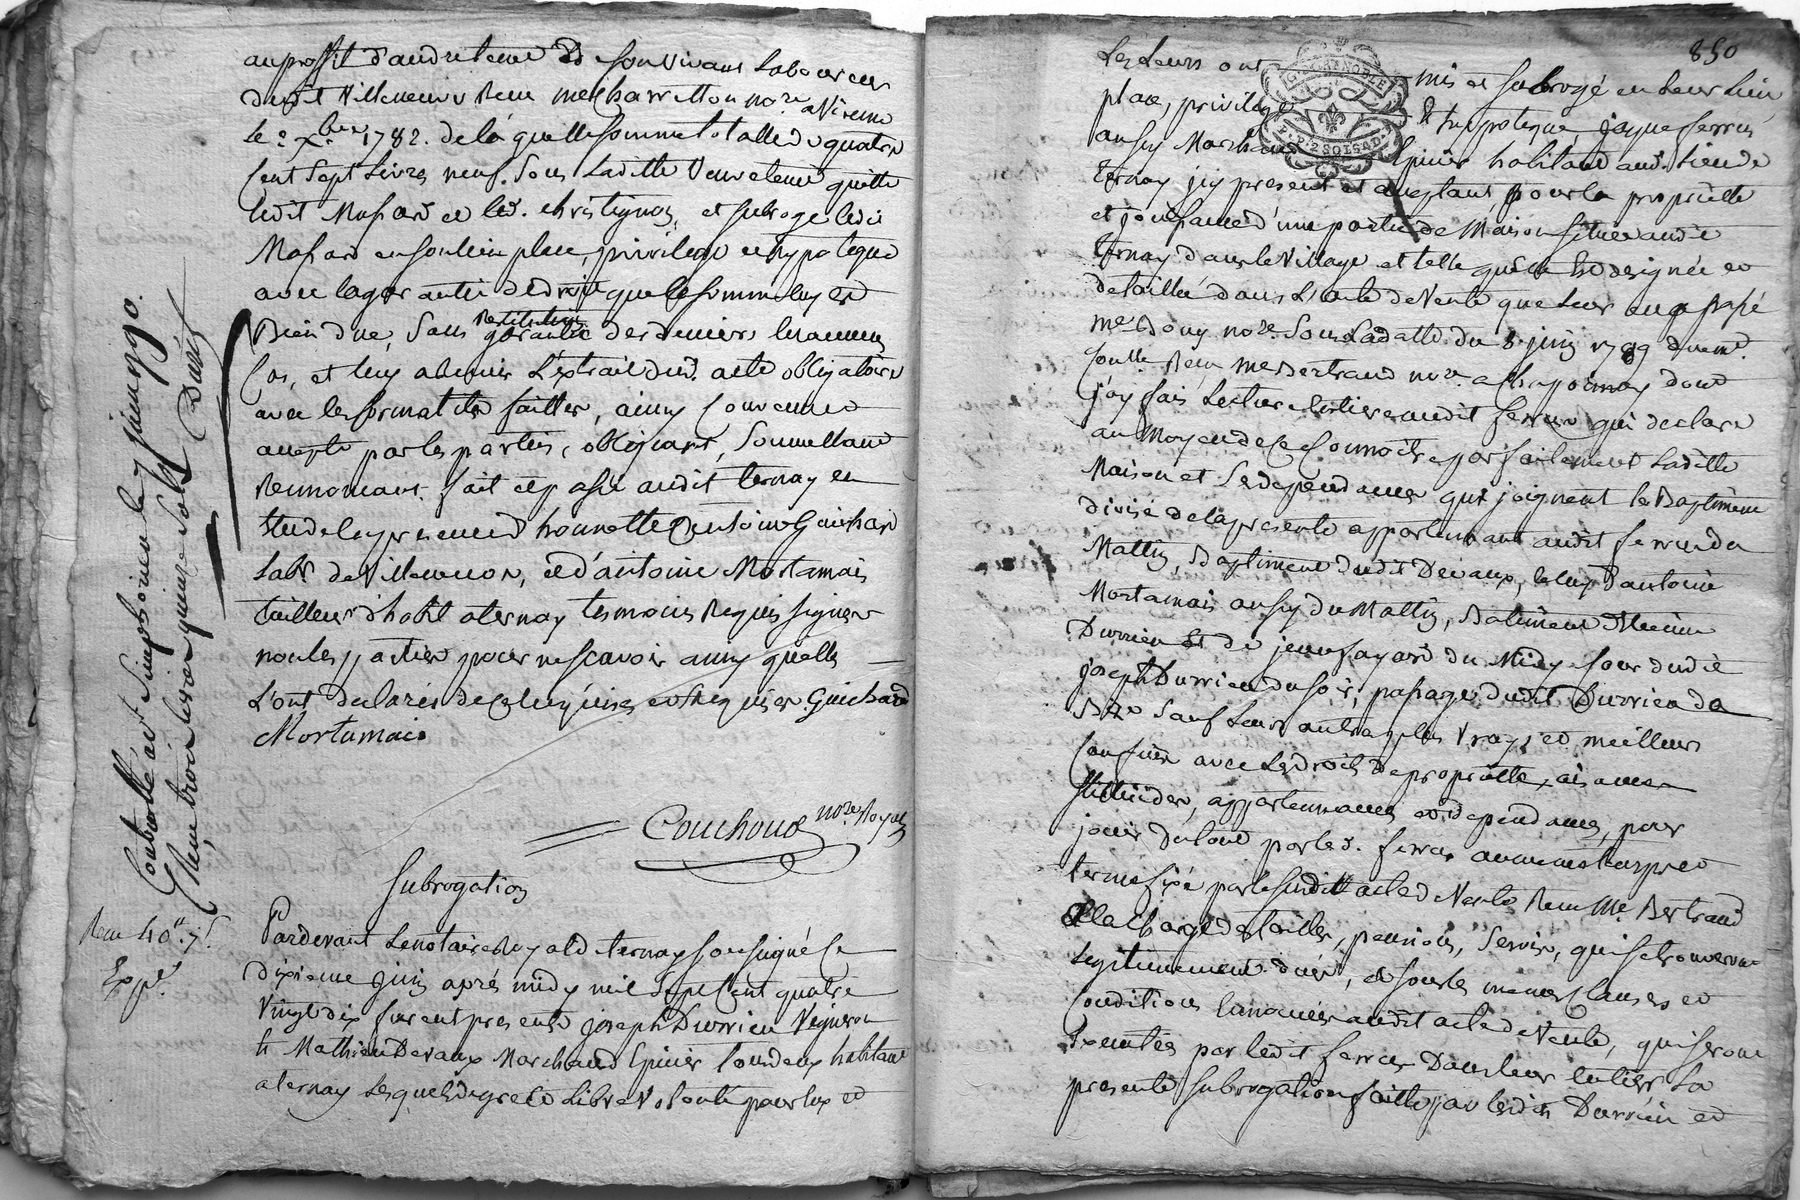 au proffit d'andre teme Et de son vivant Laboureur
dudit Villeneuve Reçu me Charretton nore a Vienne
le 2 Xbre 1782. de la quelle somme totalle de quatre
Cent Sept Livres neuf Sous Laditte Veuve teme quitte
ledit Mofard et led. et subroge ledit
Mofard en son lieu place, privilege et hypoteque
avec la garantie de droit que le somme luy est
Bien due, Sans Restitution garantie des deniers En aucun
Cas, et luy a Remis L'extrait dud. acte obligatoire
avec les formalités faittes, ainsy Convenu
accepté par les parties, obligeant, Soumettant
Renonceant. fait et passé audit ternay en
Etude En presence d'honnette Antoine Guichard
Labr de Villeneuve, et d'antoine Mortamais
tailleur d'habit a ternay temoins Requis signés
non les parties pour ne scavoir ainsy quelles
L'ont declarés de ce Enquises et Requises. Guichard
Mortamais
Couchoud nore Royal
Controllé à St Simphorien le 7 juin 1790.
Reçu trois livres quinze Sols
Subrogation
Reçu 40s. 7d.
Exp.
Pardevant Le notaire Royal de ternay soussigné Ce
dixieme juin après midy mil Sept Cent quatre
Vingt dix furent presents joseph Durrieu Vigneron
Et Mathieu Devaux Marchand Epicier tous deux habitant
a ternay Lesquels de gré et Libre Volonté pour Eux et
850
Les Leurs ont mis et Subrogé en Leur Lieu
G. GRENOBLE
2 SOLS 4 D
place, privilege & hypoteque, jaque ferrus
aussy Marchand Epicier habitant aud. Lieu de
ternay icy present et acceptant pour la proprieté
et jouissance d'une partie de Maison Située audit
ternay dans le Village et telle quelle Est designée et
detaillée dans L'acte de Vente que Leur en a Passé
me Douy nore. Sous La datte du 8 juin 1789 dument
Controllé Reçu me Bertrand nore. a Chaponnay dont
j'ay fais Lecture Entiere audit ferrus qui declare
au Moyen de Ce Connoitre parfaitement Laditte
Maison et Ses dependances qui joignent le Baptiment
divisé de la presente appartenant audit ferrus du
Mattin, Baptiment dudit Devaux, Celuy d'antoine
Mortamais aussy du Mattin, Batiment
Durrieu Et de jean fayard du Midy Cour dudit
joseph Durrieu du soir, passage dudit Durrieu de
Bize Sauf Leurs autres plus Vrays et meilleurs
Confins avec Les droits de proprietté, aisances
Servitudes, appartenances et dependances, pour
jouir du tout par led. ferrus au meme tems et
terme fixé par le susditt acte de Vente Reçu Me Bertrand
a la Charge des tailles, pensions, Servis, qui se trouveront
Legitimement dües, et sous les memes Clauses et
Conditions Enoncées audit acte de Vente, qui seront
Executés par ledit ferrus Dans leur Entier La
presente Subrogation faitte par lesdits Durrieu et